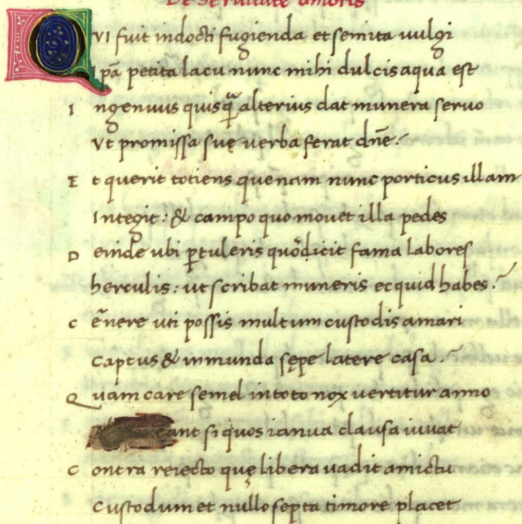 De seruitute amoris
QVI fuit indocti fugienda et semita uulgi
Ipã petita lacu nunc mihi dulcis aqua est
I ngenuus quisq̃ alterius dat munera seruo
Vt promissa suę uerba ferat dñe
E t querit totiens que nam nunc porticus illam
Integit: & campo quo mouet illa pedes
D einde ubi ꝑtuleris quõ dicit fama labores
herculis: ut scribat muneris ecquid habes.
C ẽnere uti possis multum custodis amari
Captus & inmunda sępe latere casa.
Q uam care semel in toto nox uertitur anno
cant si quos ianua clausa iuuat
C ontra reiecto quę libera uadit amictu
Custodum et nullo septa timore placet